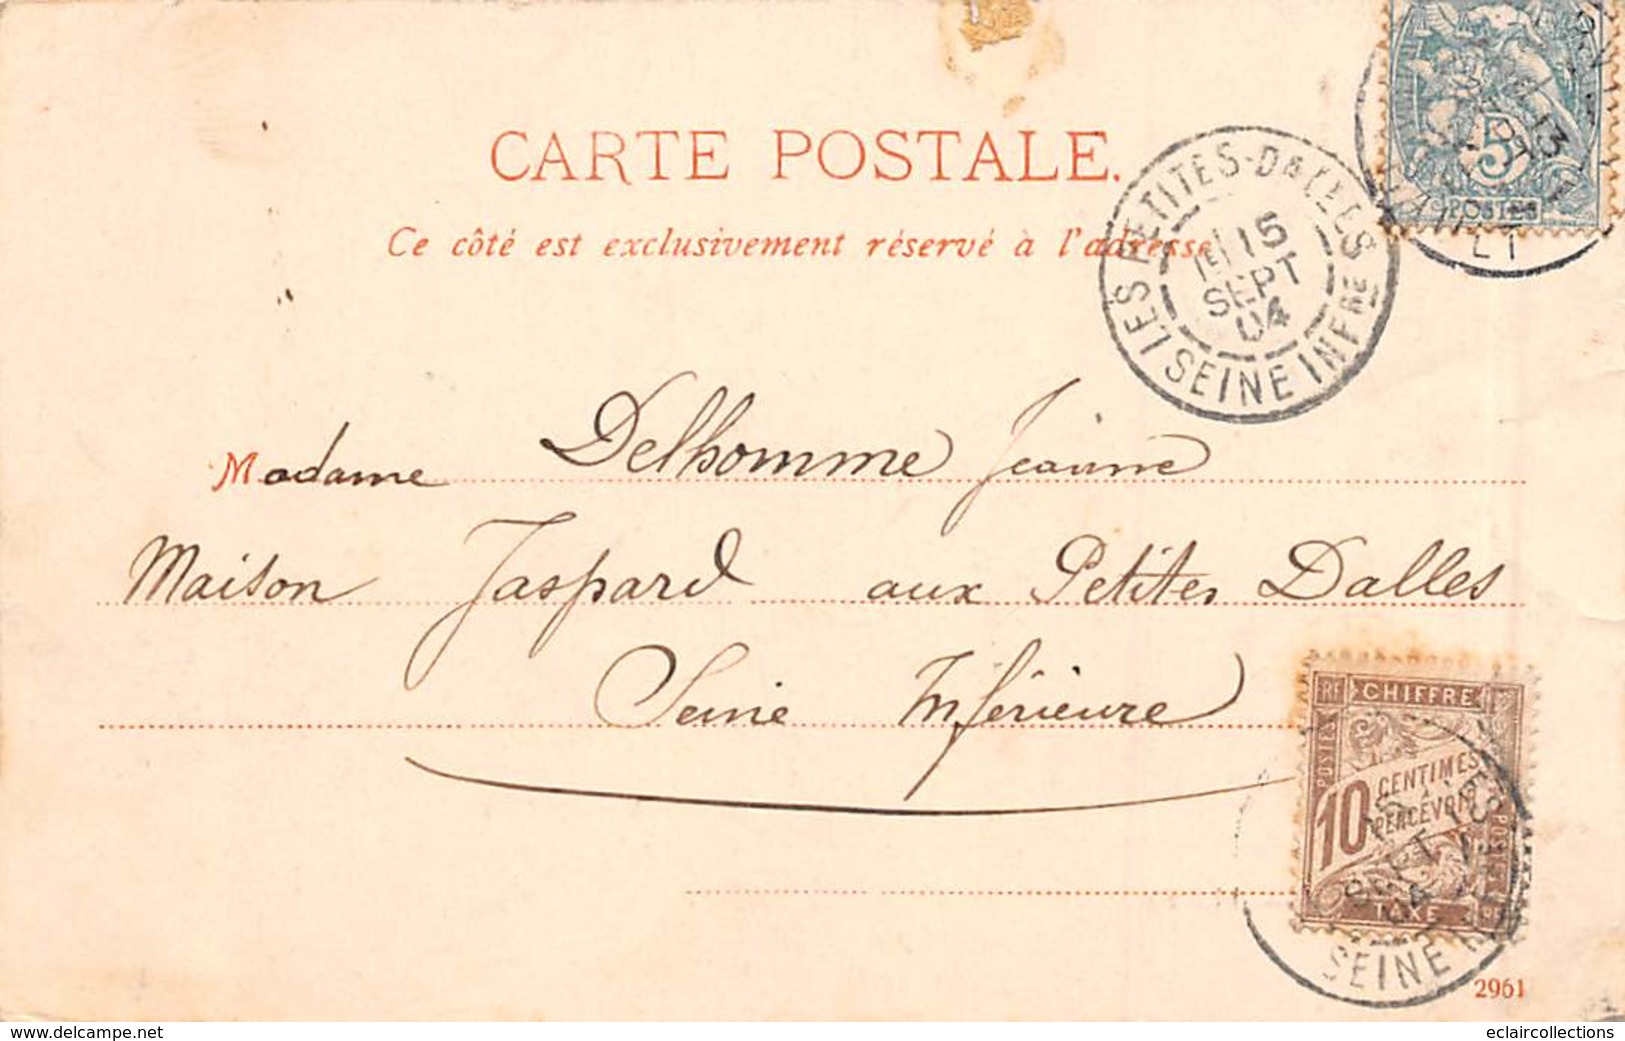 CARTE POSTALE.
Ce côté est exclusivement réservé à l'adresse
5
POSTES
LES PETITES-DALLES
15
SEPT
04
SEINE INFRE
Madame Delhomme Jeanne
Maison Jaspard aux Petites Dalles
Seine Inférieure
RF CHIFFRE
POSTES
10 CENTIMES
A PERCEVOIR
TAXE
SEPT
04
SEINE
2961
www.delcampe.net
eclaircollections